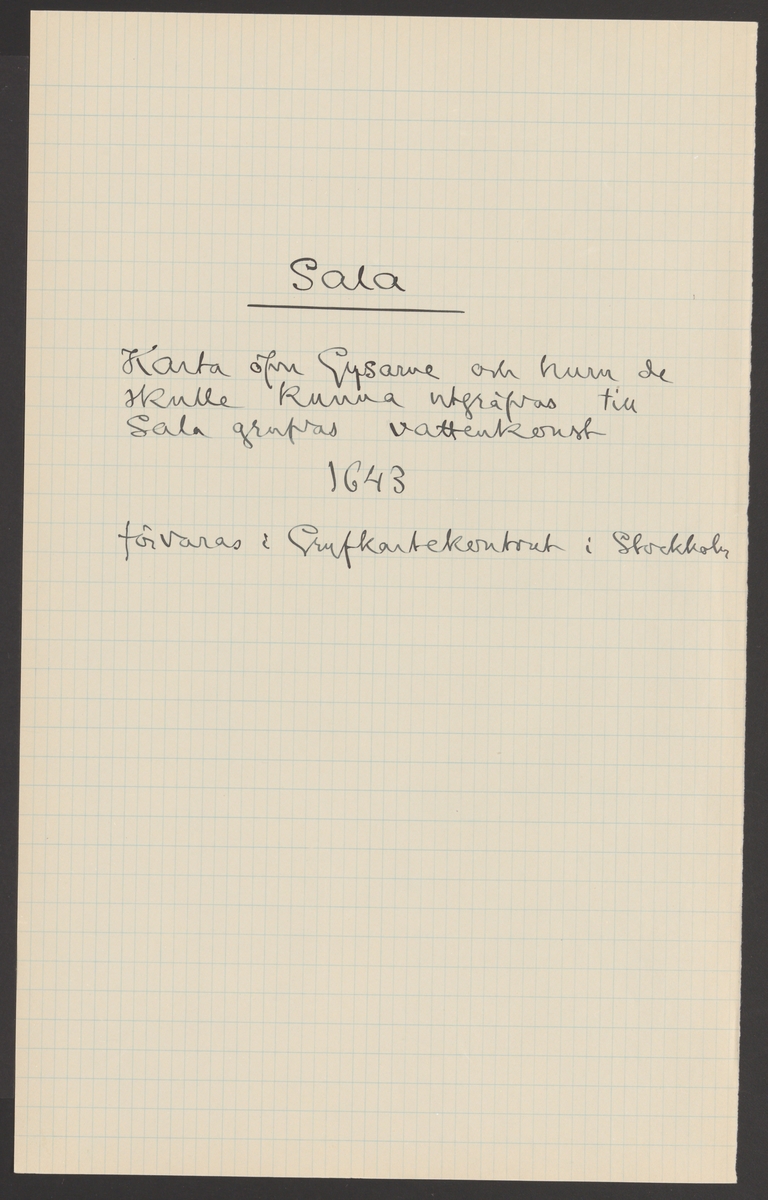 Sala
Karta öfvr Gysarne och huru de
skulle kunna utgräfvas till
Sala grufvas vattenkonst
1643
förvaras i Grufkartekontoret i Stockholm